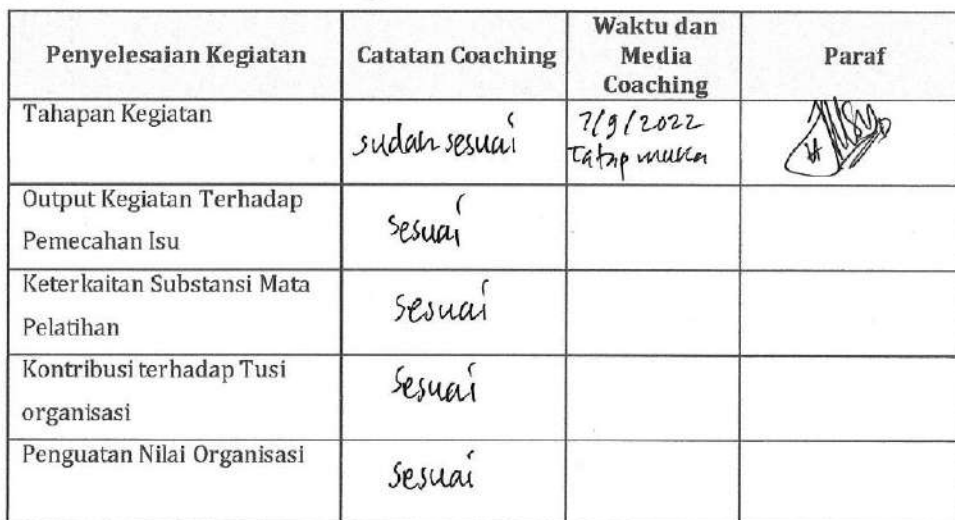 Penyelesaian Kegiatan
Catatan Coaching
Waktu dan
Media
Coaching
Paraf
Tahapan Kegiatan
sudah sesuai
7/9/2022
Tatap muka
Output Kegiatan Terhadap
Pemecahan Isu
Sesuai
Keterkaitan Substansi Mata
Pelatihan
Sesuai
Kontribusi terhadap Tusi
organisasi
Sesuai
Penguatan Nilai Organisasi
Sesuai